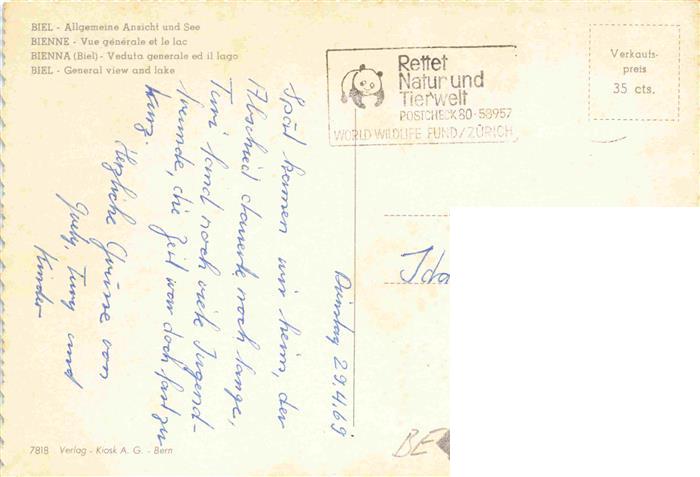 BIEL - Allgemeine Ansicht und See
BIENNE - Vue générale et le lac
BIENNA (Biel) - Veduta generale ed il lago
BIEL - General view and lake
Rettet
Natur und
Tierwelt
POSTCHECK 80-58957
WORLD WILDLIFE FUND/ZÜRICH
Verkaufs-
preis
35 cts.
Dienstag 29.4.69
Spät kamen wir heim, der
Abschied dauerte noch lange,
Turi fand noch viele Jugend-
freunde, die Zeit war doch fast zu
kurz.
Herzliche Grüsse von
Turi und
Kinder
Ida
BE
7818 Verlag - Kiosk A. G. - Bern